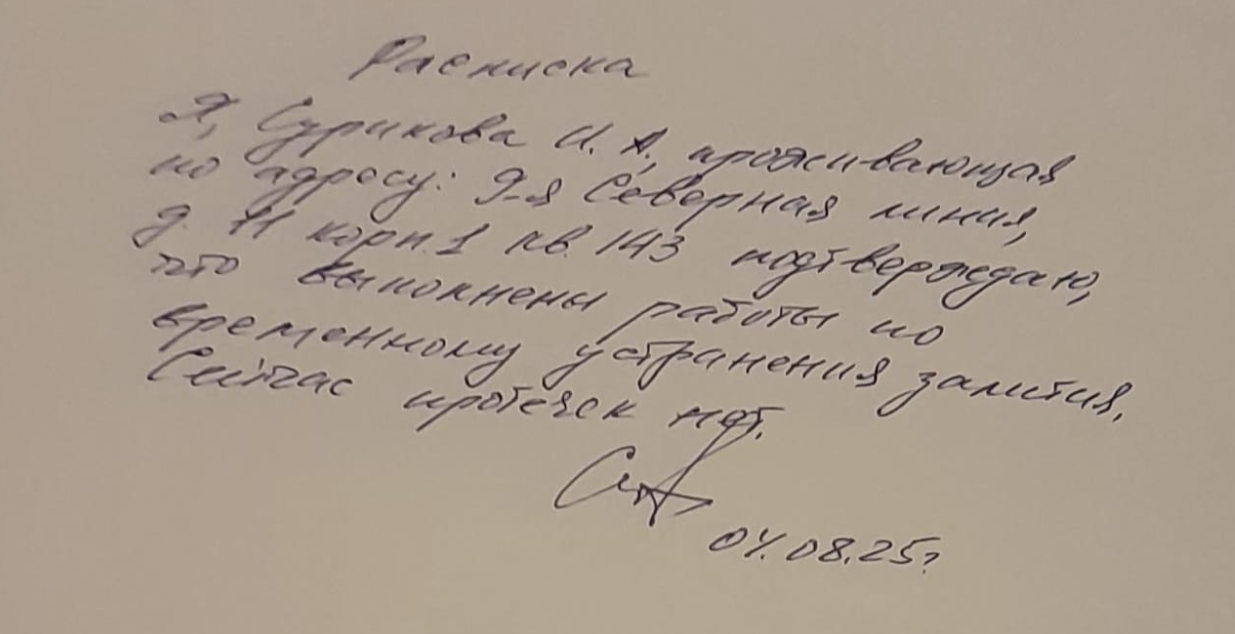 Расписка
Я, Сурикова И. А., проживающая
по адресу: 9-я Северная линия,
д. 11 корп. 1 кв. 143 подтверждаю,
что выполнены работы по
временному устранения залития.
Сейчас протечек нет.
04.08.25г